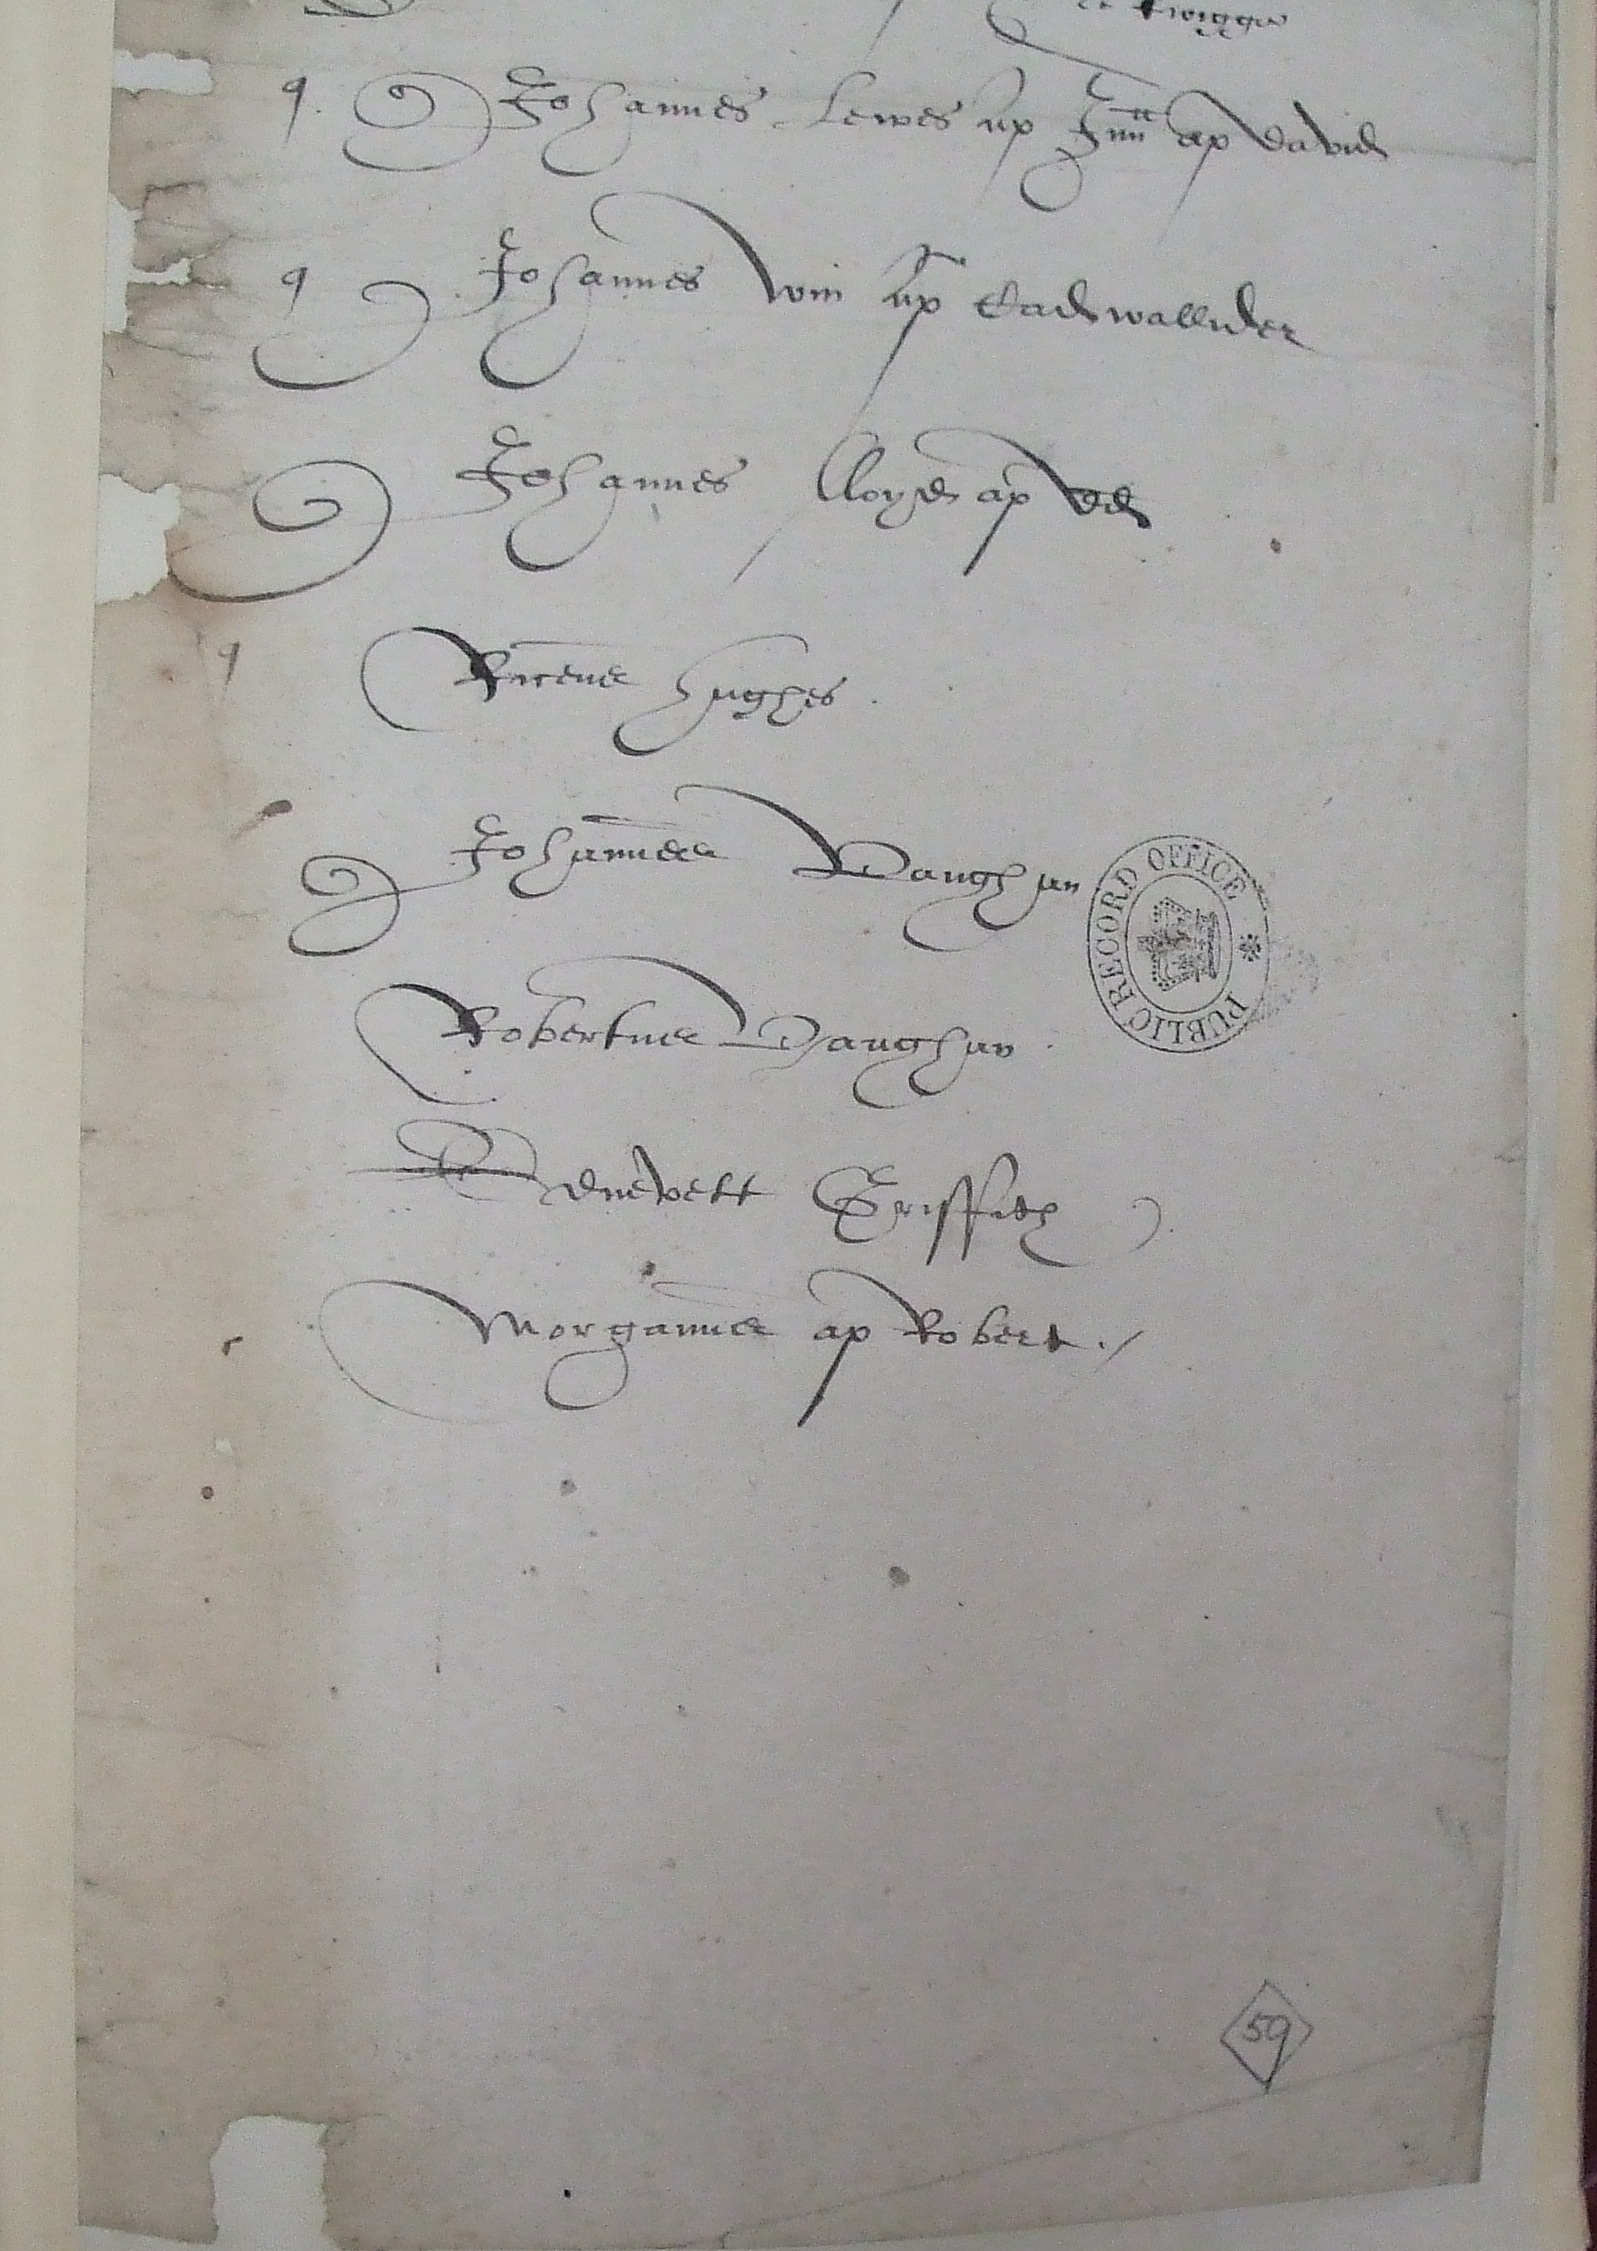 q. Johannes Lewes ap Jenn ap david
q Johannes win ap Cadwallider
Johannes lloyd ap dd
q hughes.
Johannes Vaughan
Robertus Vaughan
Ednevett Griffith
Morganus ap Robert ./
PUBLIC RECORD OFFICE
59